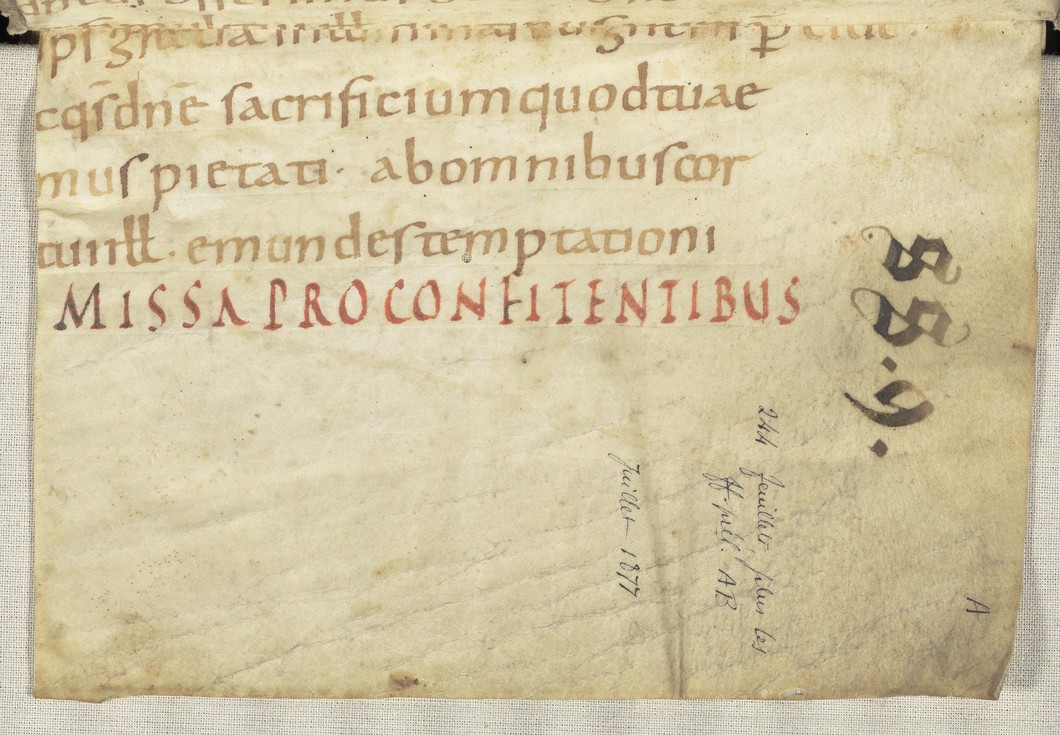 cqs̄ dnē sacrificium quod tuae
mus pietati · ab omnibus cor
tui ill · emundes temptationi
MISSA PRO CONFITENTIBUS
244 feuillets plus les
ff. prél. AB
Juillet 1877
A